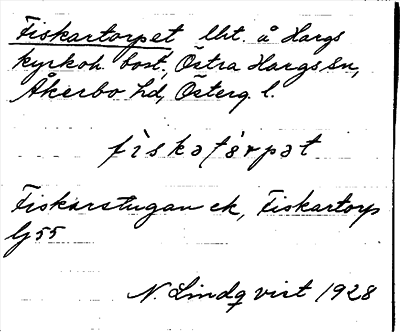 Fiskartorpet lht. å Hargs
kyrkoh. bost, Östra Hargs sn,
Åkerbo hd, Österg. l.
fìskatárpət
Fiskarstugan ek, Fiskartorp
G55
N. Lindqvist 1928